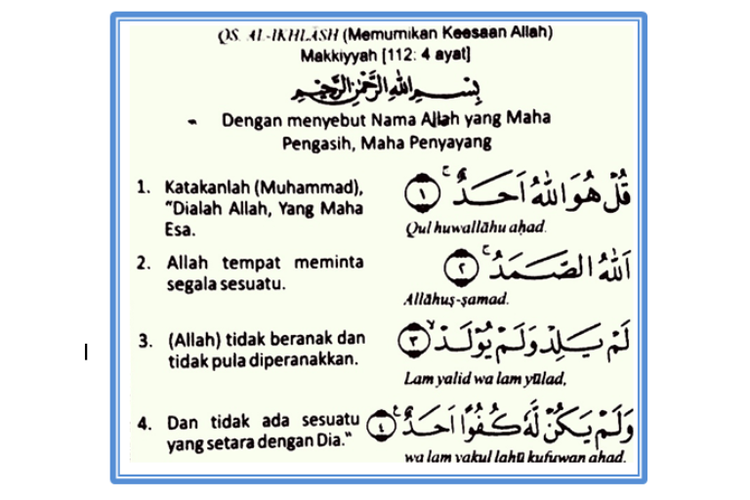 QS. AL-IKHLĀSH (Memurnikan Keesaan Allah)
Makkiyyah [112: 4 ayat]
بِسْمِ اللّٰهِ الرَّحْمٰنِ الرَّحِيْمِ
- Dengan menyebut Nama Allah yang Maha
Pengasih, Maha Penyayang
1. Katakanlah (Muhammad),
"Dialah Allah, Yang Maha
Esa.
قُلْ هُوَ اللّٰهُ اَحَدٌ ۚ ﴿١﴾
Qul huwallāhu aḥad.
2. Allah tempat meminta
segala sesuatu.
اَللّٰهُ الصَّمَدُ ۚ ﴿٢﴾
Allāhuṣ-ṣamad.
3. (Allah) tidak beranak dan
tidak pula diperanakkan.
لَمْ يَلِدْ وَلَمْ يُوْلَدْ ۙ ﴿٣﴾
Lam yalid wa lam yūlad,
4. Dan tidak ada sesuatu
yang setara dengan Dia."
وَلَمْ يَكُنْ لَّهٗ كُفُوًا اَحَدٌ ۚ ﴿٤﴾
wa lam yakul lahū kufuwan ahad.